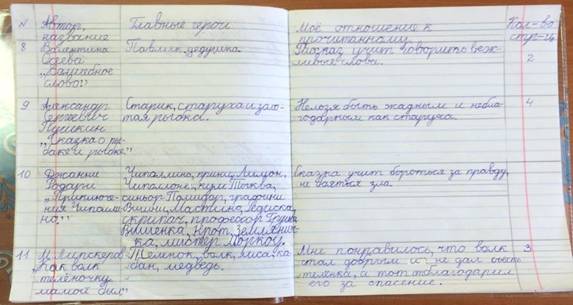 N Автор, название Главные герои Моё отношение к прочитанному Кол-во стр-ц
8 Валентина Осеева „Волшебное слово" Павлик, дедушка. Рассказ учит говорить вежливые слова. 2
9 Александр Сергеевич Пушкин „Сказка о рыбаке и рыбке" Старик, старуха и золотая рыбка. Нельзя быть жадным и неблагодарным как старуха. 4
10 Джанни Родари „Приключения Чиполлино" Чиполлино, принц Лимон, Чиполлоне, кум Тыква, синьор Помидор, графини Вишни, Мастино, Редиска, скрипач, профессор Груша, Вишенка, Крот, Земляничка, мистер Моркоу. Сказка учит бороться за правду, не бояться зла.
11 М. Мирскеров „Как волк телёночку мамой был" Теленок, волк, лиса, кабан, медведь. Мне понравилось, что волк стал добрым и не дал съесть телёнка, а тот отблагодарил его за спасение. 3